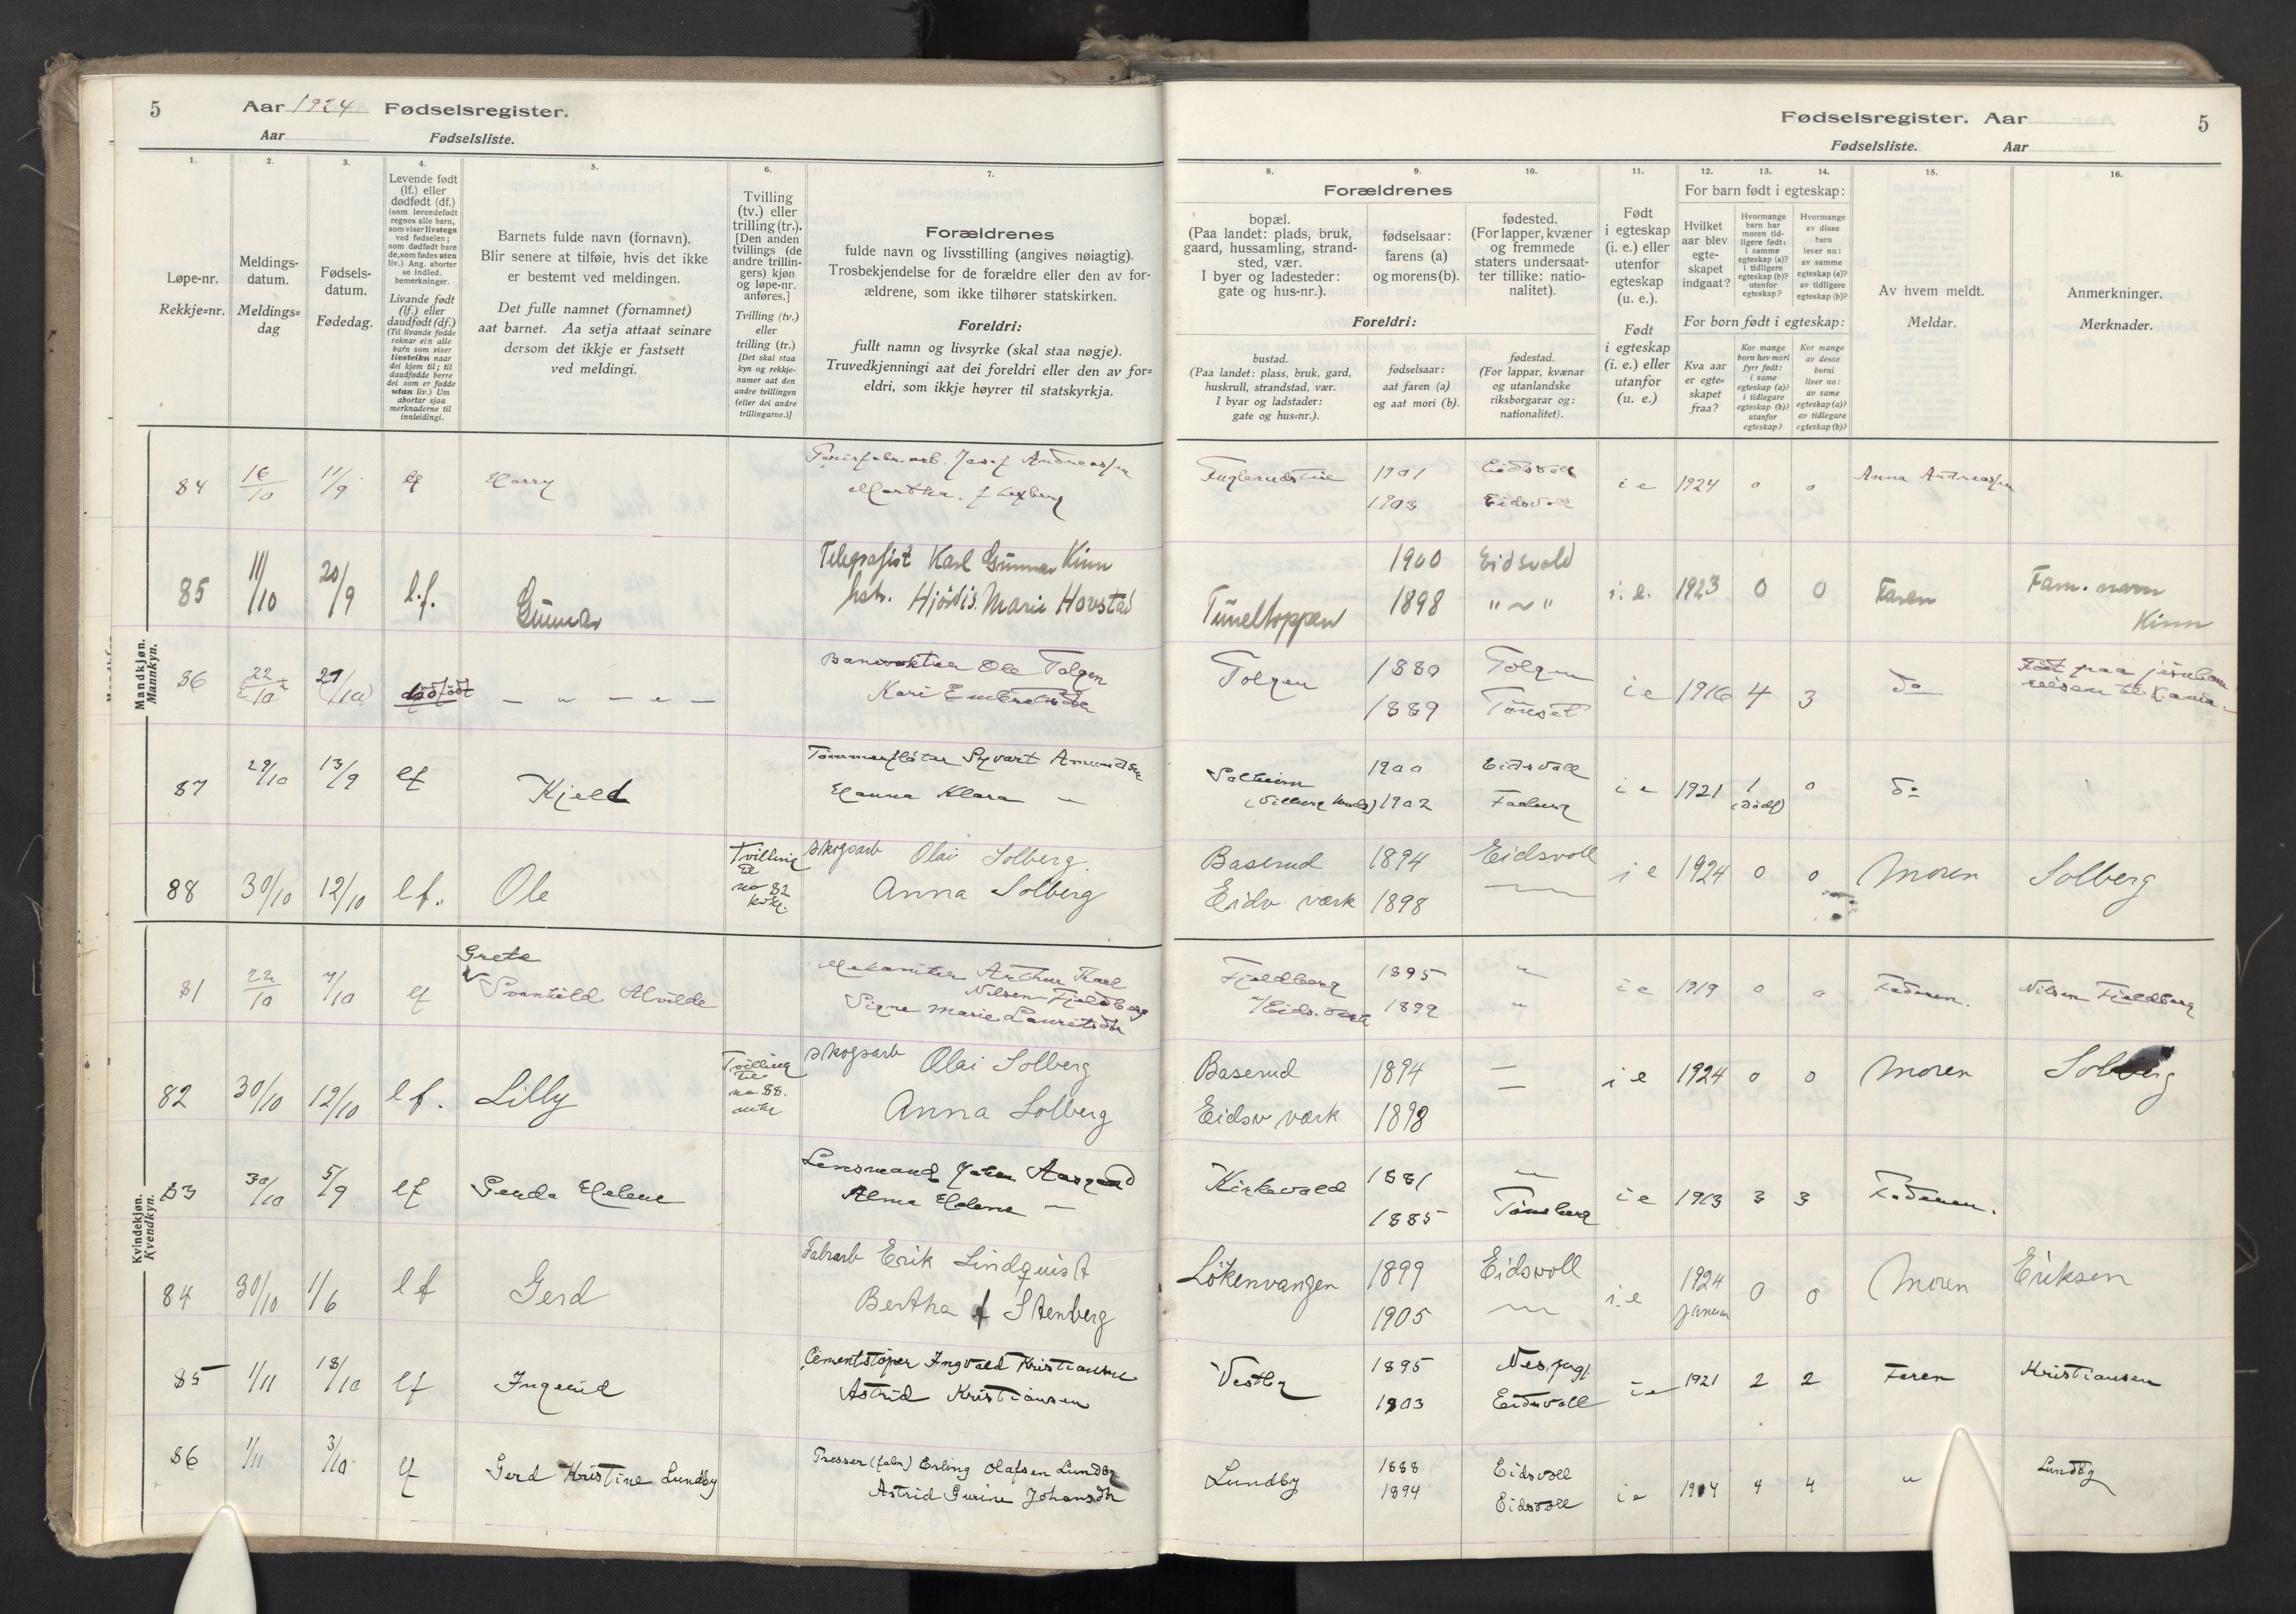 5
Aar 1924 Fødselsregister.
Aar Fødselsliste.
1.
2.
3.
4.
5.
6.
7.
Løpe-nr.
Rekkje=nr.
Meldings-
datum.
Meldings=
dag
Fødsels-
datum.
Fødedag.
Levende født
(lf.) eller
dødfødt (df.)
(som levendefødt
regnes alle barn,
som viser livstegn
ved fødselen;
som dødfødt bare
de, som fødes uten
liv.) Ang. aborter
se indled.
bemerkninger.
Livande født
(lf.) eller
daudfødt (df.)
(Til livande fødde
reknar ein alle
barn som viser
livsteikn naar
dei kjem til; til
daudfødde berre
dei som er fødde
utan liv.) Um
abortar sjaa
merknaderne til
innleidingi.
Barnets fulde navn (fornavn).
Blir senere at tilføie, hvis det ikke
er bestemt ved meldingen.
Det fulle namnet (fornamnet)
aat barnet. Aa setja attaat seinare
dersom det ikkje er fastsett
ved meldingi.
Tvilling
(tv.) eller
trilling (tr.).
[Den anden
tvillings (de
andre trillin-
gers) kjøn
og løpe-nr.
anføres.]
Tvilling (tv.)
eller
trilling (tr.)
[Det skal staa
kyn og rekkje-
numer aat den
andre tvillingen
(eller dei andre
trillingarne.)]
Forældrenes
fulde navn og livsstilling (angives nøiagtig).
Trosbekjendelse for de forældre eller den av for-
ældrene, som ikke tilhører statskirken.
Foreldri:
fullt namn og livsyrke (skal staa nøgje).
Truvedkjenningi aat dei foreldri eller den av for=
eldri, som ikkje høyrer til statskyrkja.
Mandkjøn.
Mannkyn.
84 16/10 11/9 lf Harry Josef Andreassen
Martha f.
85 11/10 20/9 l.f. Gunnar Telegrafist Karl Gunnar Kinn
Hjørdis Marie Hovstad
86 dødfødt — " — " — Banevokter Ole Tolgen
Kari
87 29/10 13/9 lf Kjell Tømmerfløter Syvart Amundsen
Hanna Klara —
88 30/10 12/10 lf. Ole Tvilling
til
no 82
kvk. skogsarb Olai Solberg.
Anna Solberg
Kvindekjøn.
Kvendkyn.
81 22/10 7/10 lf Grete
Svanhild Alvilde Mekaniker Arthur Karl
Nilsen Fjeldberg
Signe Marie Lauritsdtr
82 30/10 12/10 lf. Lilly Tvilling
til
no 88.
mk skogsarb Olai Solberg
Anna Solberg
83 30/10 5/9 lf Gerda Helene Lensmand Johan Aasgaard
Alma Helene —
84 30/10 1/6 lf Gerd Fabrarb Erik Lindquist
Bertha f Stenberg
85 1/11 18/10 lf Ingerid Cementstøper Ingvald Kristiansen
Astrid Kristiansen
86 1/11 3/10 lf Gerd Kristine Lundby Presser (fabr) Erling Olafsen Lundby
Astrid Gurine Johansdtr
Fødselsregister. Aar 5
Fødselsliste. Aar
8.
9.
10.
11.
12.
13.
14.
15.
16.
Forældrenes
bopæl.
(Paa landet: plads, bruk,
gaard, hussamling, strand-
sted, vær.
I byer og ladesteder:
gate og hus-nr.).
fødselsaar:
farens (a)
og morens (b).
fødested.
(For lapper, kvæner
og fremmede
staters undersaat-
ter tillike: natio-
nalitet).
Foreldri:
bustad.
(Paa landet: plass, bruk, gard,
huskrull, strandstad, vær.
I byar og ladstader:
gate og hus=nr.).
fødselsaar:
aat faren (a)
og aat mori (b).
fødestad.
(For lappar, kvænar
og utanlandske
riksborgarar og:
nationalitet).
Født
i egteskap
(i. e.) eller
utenfor
egteskap
(u. e.).
Født
i egteskap
(i. e.) eller
utanfor
(u. e.)
For barn født i egteskap:
Hvilket
aar blev
egte-
skapet
indgaat?
Hvormange
barn har
moren tid-
ligere født:
i samme
egteskap (a)?
i tidligere
egteskap (b)?
utenfor
egteskap?
Hvormange
av disse
barn
lever nu:
av samme
egteskap (a)?
av tidligere
egteskap (b)?
For born født i egteskap:
Kva aar
er egte-
skapet
fraa?
Kor mange
born hev mori
fyrr født:
i same
egteskap (a)?
i tidlegare
egteskap (b)?
utanfor
egteskap?
Kor mange
av desse
borni
liver no:
av same
egteskap (a)?
av tidlegare
egteskap (b)?
Av hvem meldt.
Meldar.
Anmerkninger.
Merknader.
1901 Eidsvoll i e 1924 0 0 Anna Andreassen
1903 Eidsvoll
Tuneltoppen 1900 Eidsvold i. e. 1923 0 0 Faren Fam. navn
1898 " ~ " Kinn
Tolgen 1880 Tolgen i e 1916 4 3 do Født paa jernbane
1889 Tönset reisen til
Solheim 1900 Eidsvoll i e 1921 1 0 do
1902 Faaberg (död)
Baserud 1894 Eidsvoll i e 1924 0 0 Moren Solberg
Eidsv værk 1898 —
Fjeldberg 1895 " i e 1919 0 0 Faderen. Nilsen Fjeldberg
1899 "
Baserud 1894 — i e 1924 0 0 Moren Solberg
Eidsv værk 1898 —
Kirkevold 1881 — i e 1913 3 3 Faderen.
1885 Tönsberg
Lökenvangen 1899 Eidsvoll i. e 1924 0 0 Moren Eriksen
1905 — januar
Vestby 1895 Nes, i e 1921 2 2 Faren Kristiansen
1903 Eidsvoll
Lundby 1888 Eidsvoll i e 1914 4 4 " Lundby
1894 Eidsvoll